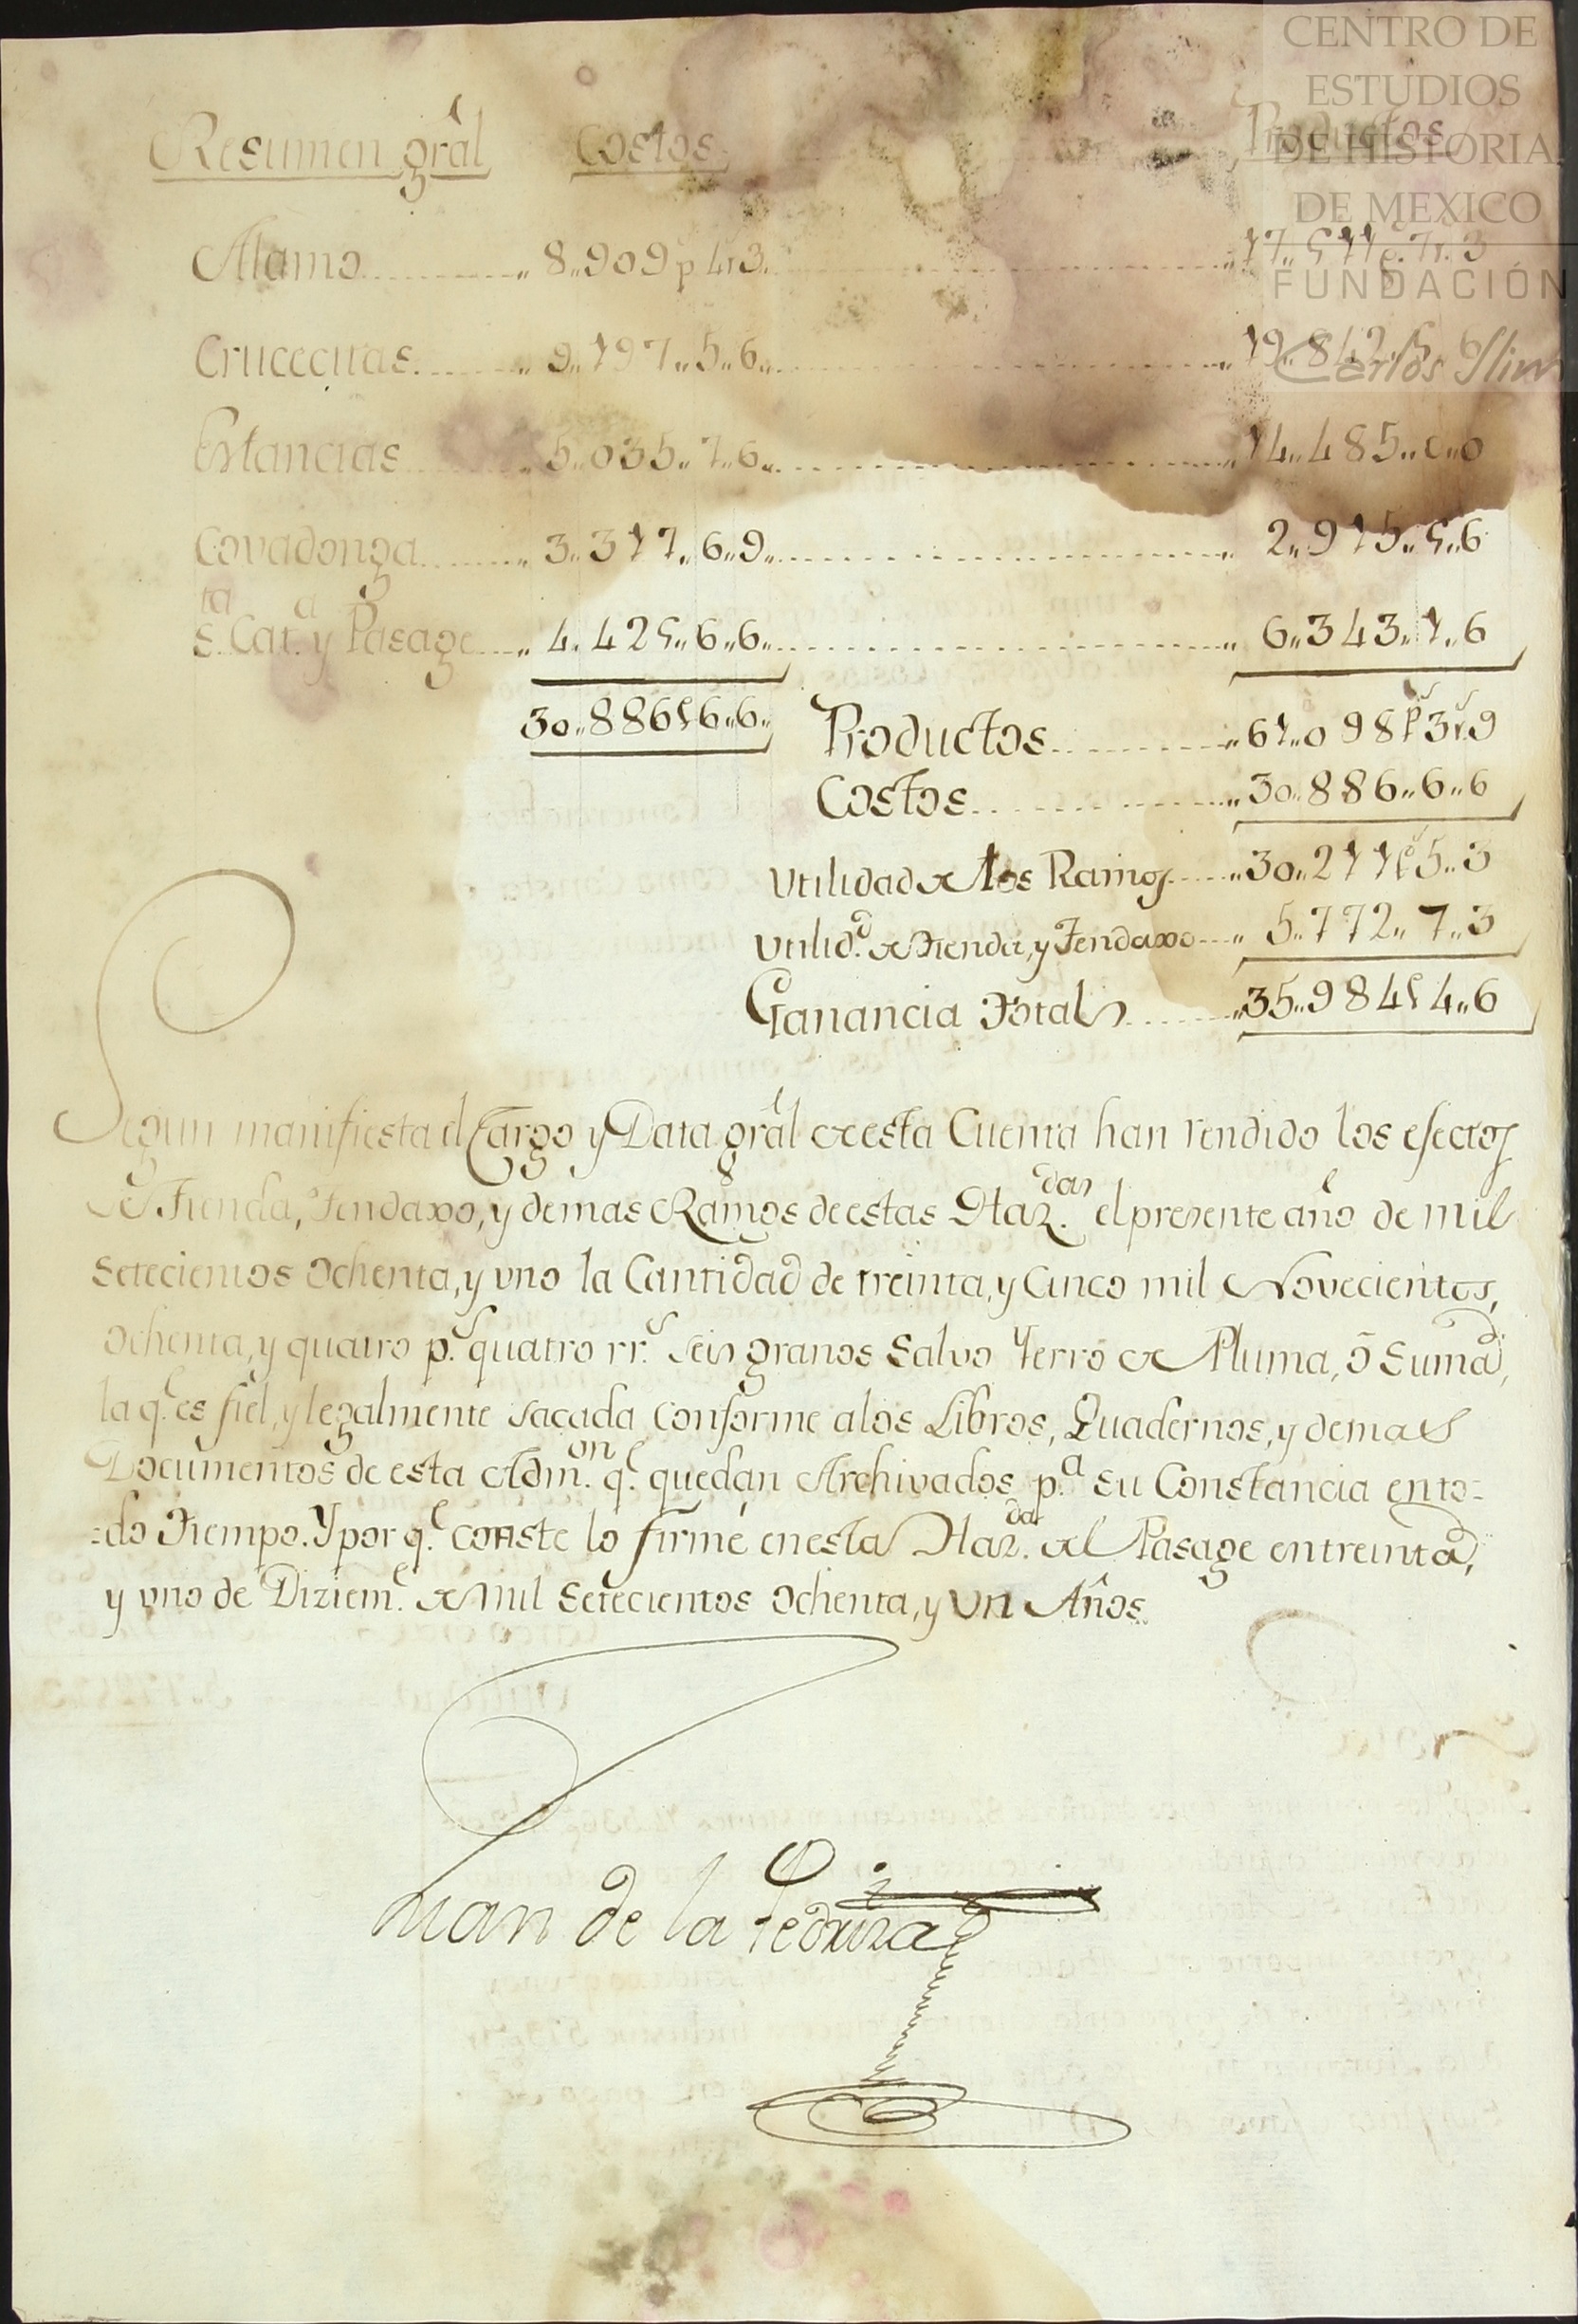 CENTRO DE
ESTUDIOS
DE HISTORIA
DE MEXICO
FUNDACIÓN
Carlos Slim
Resumen grâl Costos Productos
Alamo.......... „ 8„909 p 4r 3. .......... „17„511p.7r.3
Crucecitas.......... „ 9„197„5„6„ .......... „19„842„5„6
Estancias.......... „ 5„035„7„6„ .......... „14„485„0„0
Covadonga.......... „ 3„317„6„9„ .......... „ 2„915„5„6
S.ta Cat.a y Pasage.... „ 4„425„6„6„ .......... „ 6„343„1„6
30„886p6„6„ Productos.......... „61„098p.s3r.s9
Costos.......... „30„886„6„6
Utilidad de los Ramos...... „30„211p.s5„3
Utilid.d de Tienda, y Tendaxo.... „ 5„772„7„3
Ganancia Total...... „35„984p4„6
Segun manifiesta el Cargo y Data grâl de esta Cuenta han rendido los efectos
de Tienda, Tendaxo, y demas Ramos de estas Haz.das el presente año de mil
Setecientos Ochenta, y uno la Cantidad de treinta, y Cinco mil Novecientos,
Ochenta, y quatro p.s quatro rr.s seis granos Salvo Yerro de Pluma, ō Suma,
la q.e es fiel, y legalmente sacada conforme alos Libros, Quadernos, y demas
Documentos de esta Adm.on q.e quedan Archivados p.a su Constancia ento=
=do Tiempo. Y por q.e conste lo firmé en esta Haz.da del Pasage en treinta,
y uno de Diziem.e de mil Setecientos Ochenta, y Un Años.
Juan de la Pedriza